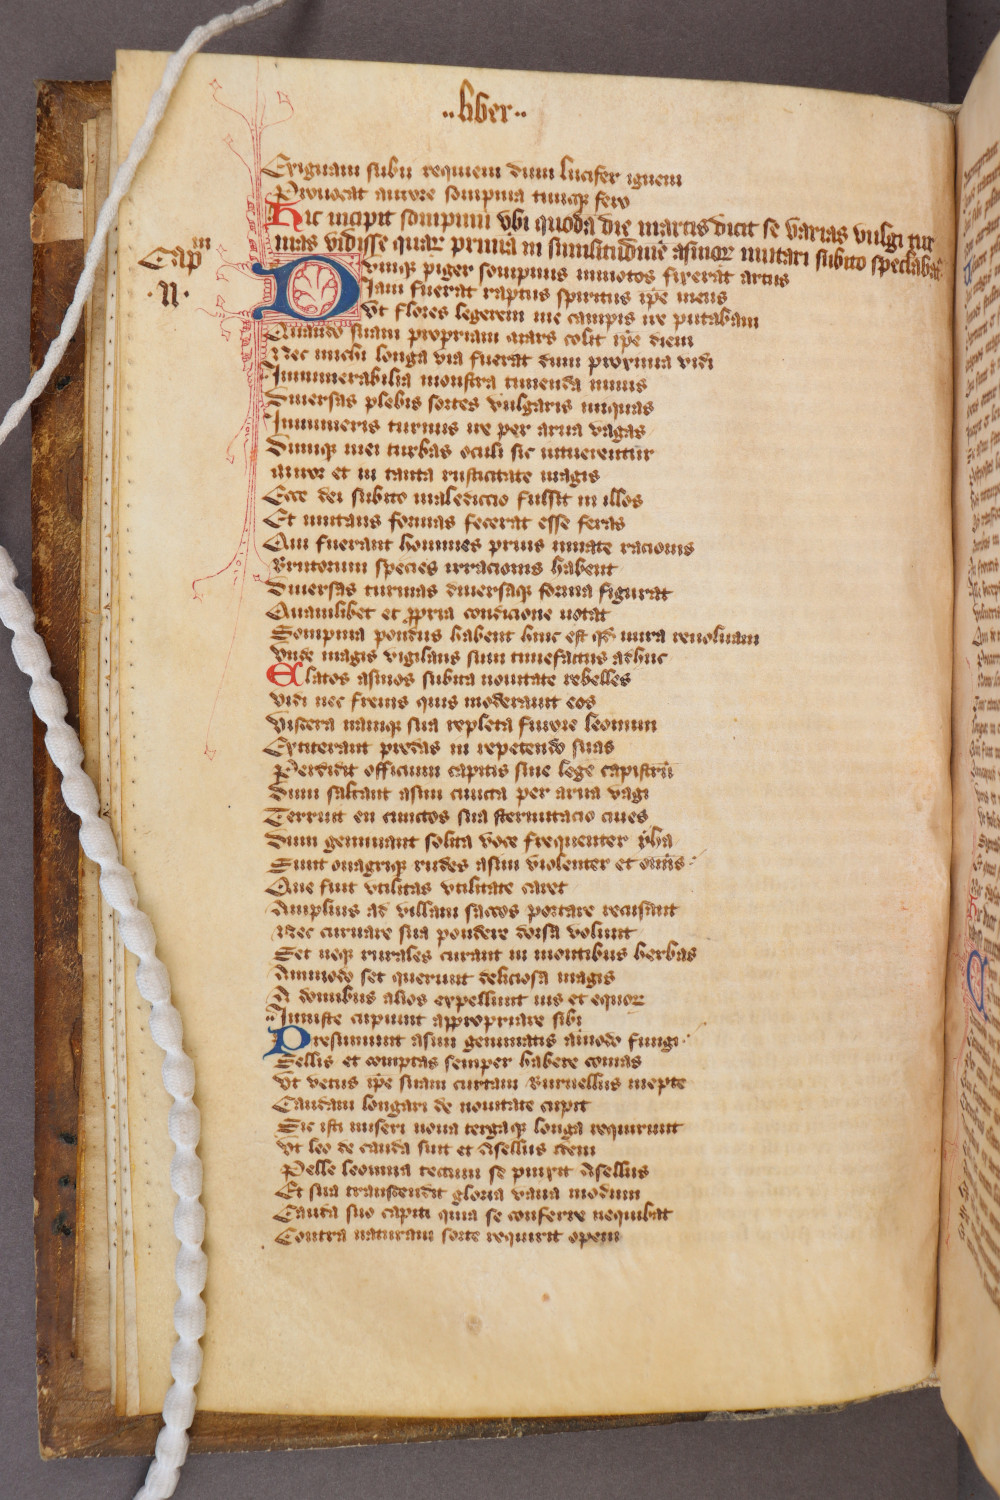 ..liber..
Exiguam subii requiem dum lucifer ignem
Prouocat aurore sompnia tuncqȝ fero
Hic incipit sompnium vbi quodā die martis dicit se varias vulgi tur
mas vidisse quaꝝ primā in similitudinē asinoꝝ mutari subito spectabat
Capm
.II.
Dvmqȝ piger sompnus inmotos fixerat artus
Iam fuerat raptus spiritus ip̄e meus
Vt flores legerem me campis ire putabam
Quando suam propriam mars colit ip̄e diem
Nec michi longa via fuerat dum proxima vidi
Innumerabilia monstra timenda nimis
Diuersas plebis sortes vulgaris iniquas
Innumeris turmis ire per arua vagas
Dumqȝ mei turbas oculi sic intuerentur
Miror et in tanta rusticitate magis
Ecce dei subito malediccio fulsit in illos
Et mutans formas fecerat esse feras
Qui fuerant homines prius innate racionis
Brutorum species irracionis habent
Diuersas turmas diuersaqȝ forma figurat
Quamlibet et ꝓpria condicione notat
Sompnia pondus habent hinc est qd̄ mira reuoluam
Vnde magis vigilans sum timefactus adhuc
Elatos asinos subita nouitate rebelles
Vidi nec frenis quis moderauit eos
Viscera namqȝ sua repleta furore leonum
Extiterant predas in repetendo suas
Perdidit officium capitis sine lege capistrū
Dum saltant asini cuncta per arua vagi
Terruit en cunctos sua sternutacio ciues
Dum geminant solita voce frequenter yha
Sunt onagriqȝ rudes asini violenter et om̄is
Que fuit vtilitas vtilitate caret
Amplius ad villam saccos portare recusant
Nec curuare sua pondere dorsa volunt
Set neqȝ rurales curant in montibus herbas
Ammodo set querunt deliciosa magis
A domibus alios expellunt ius et equoꝝ
Iniuste cupiunt appropriare sibi
Presumunt asini gemmatis amodo fungi
Sellis et comptas semper habere comas
Vt vetus ip̄e suam curtam Burnellus inepte
Caudam longari de nouitate cupit
Sic isti miseri noua tergaqȝ longa requirunt
Vt leo de cauda sint et Asellus idem
Pelle leonina tectum se pinxit Asellus
Et sua transcendit gloria vana modum
Cauda suo capiti quia se conferre nequibat
Contra naturam sorte requirit opem